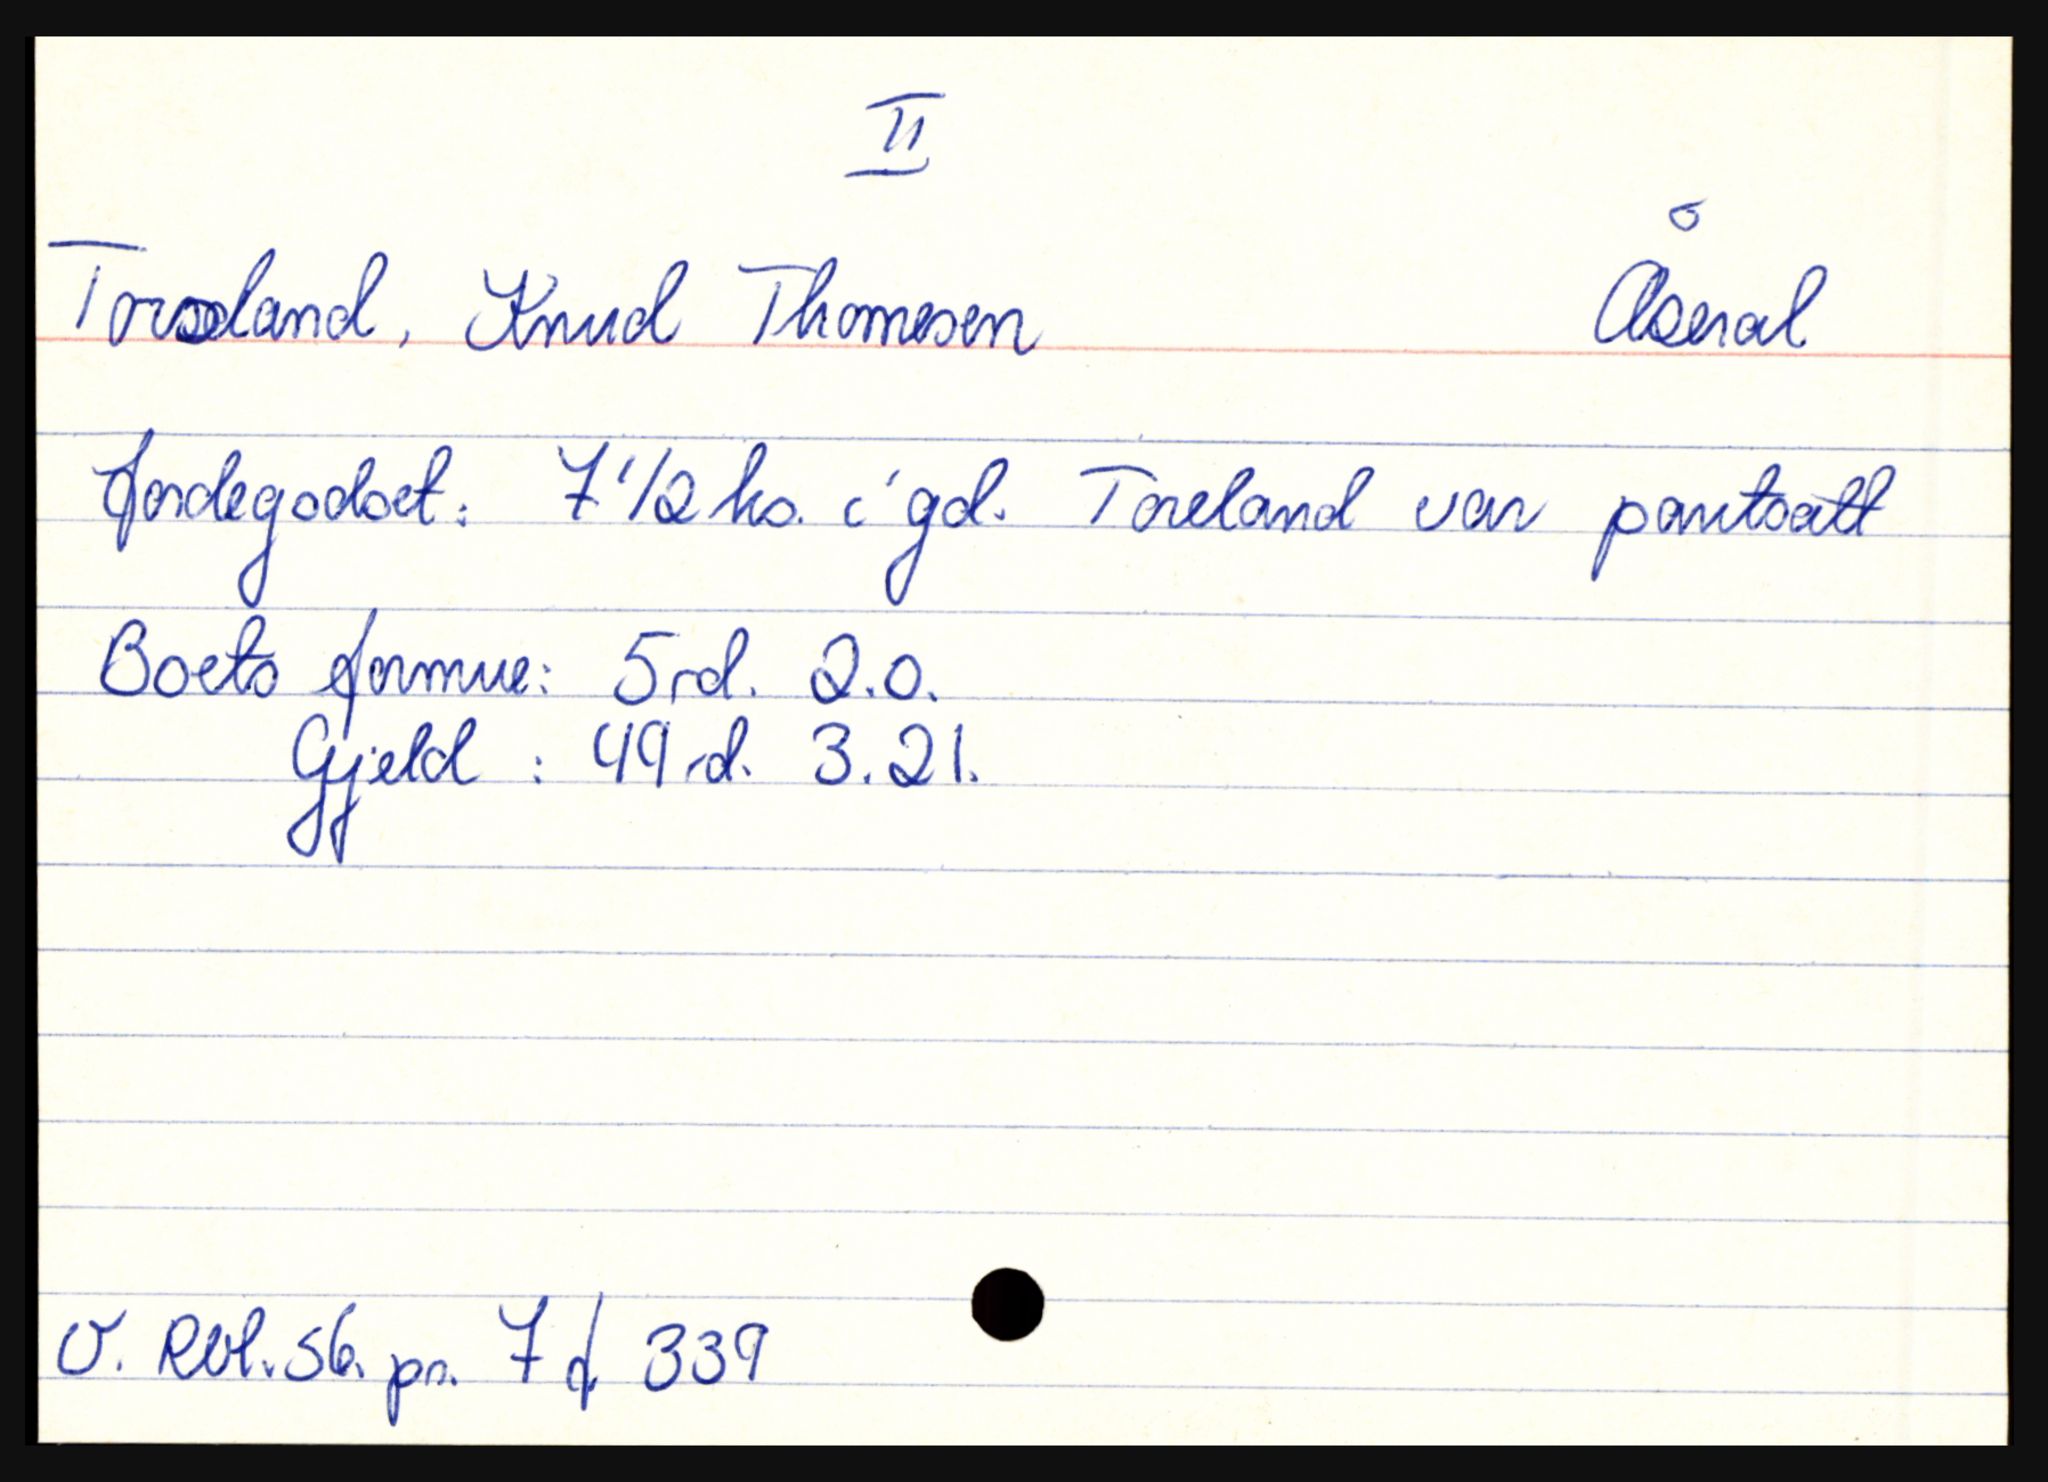 II
Åseral
Toreland, Knud Thomesen
Jordegodset: 7 1/2 ks. i gd. Toreland var pantsatt
Boets formue: 5 rd. 2.0.
Gjeld : 49 rd. 3.21.
V. Rbl. s6. pr. 7 f 339